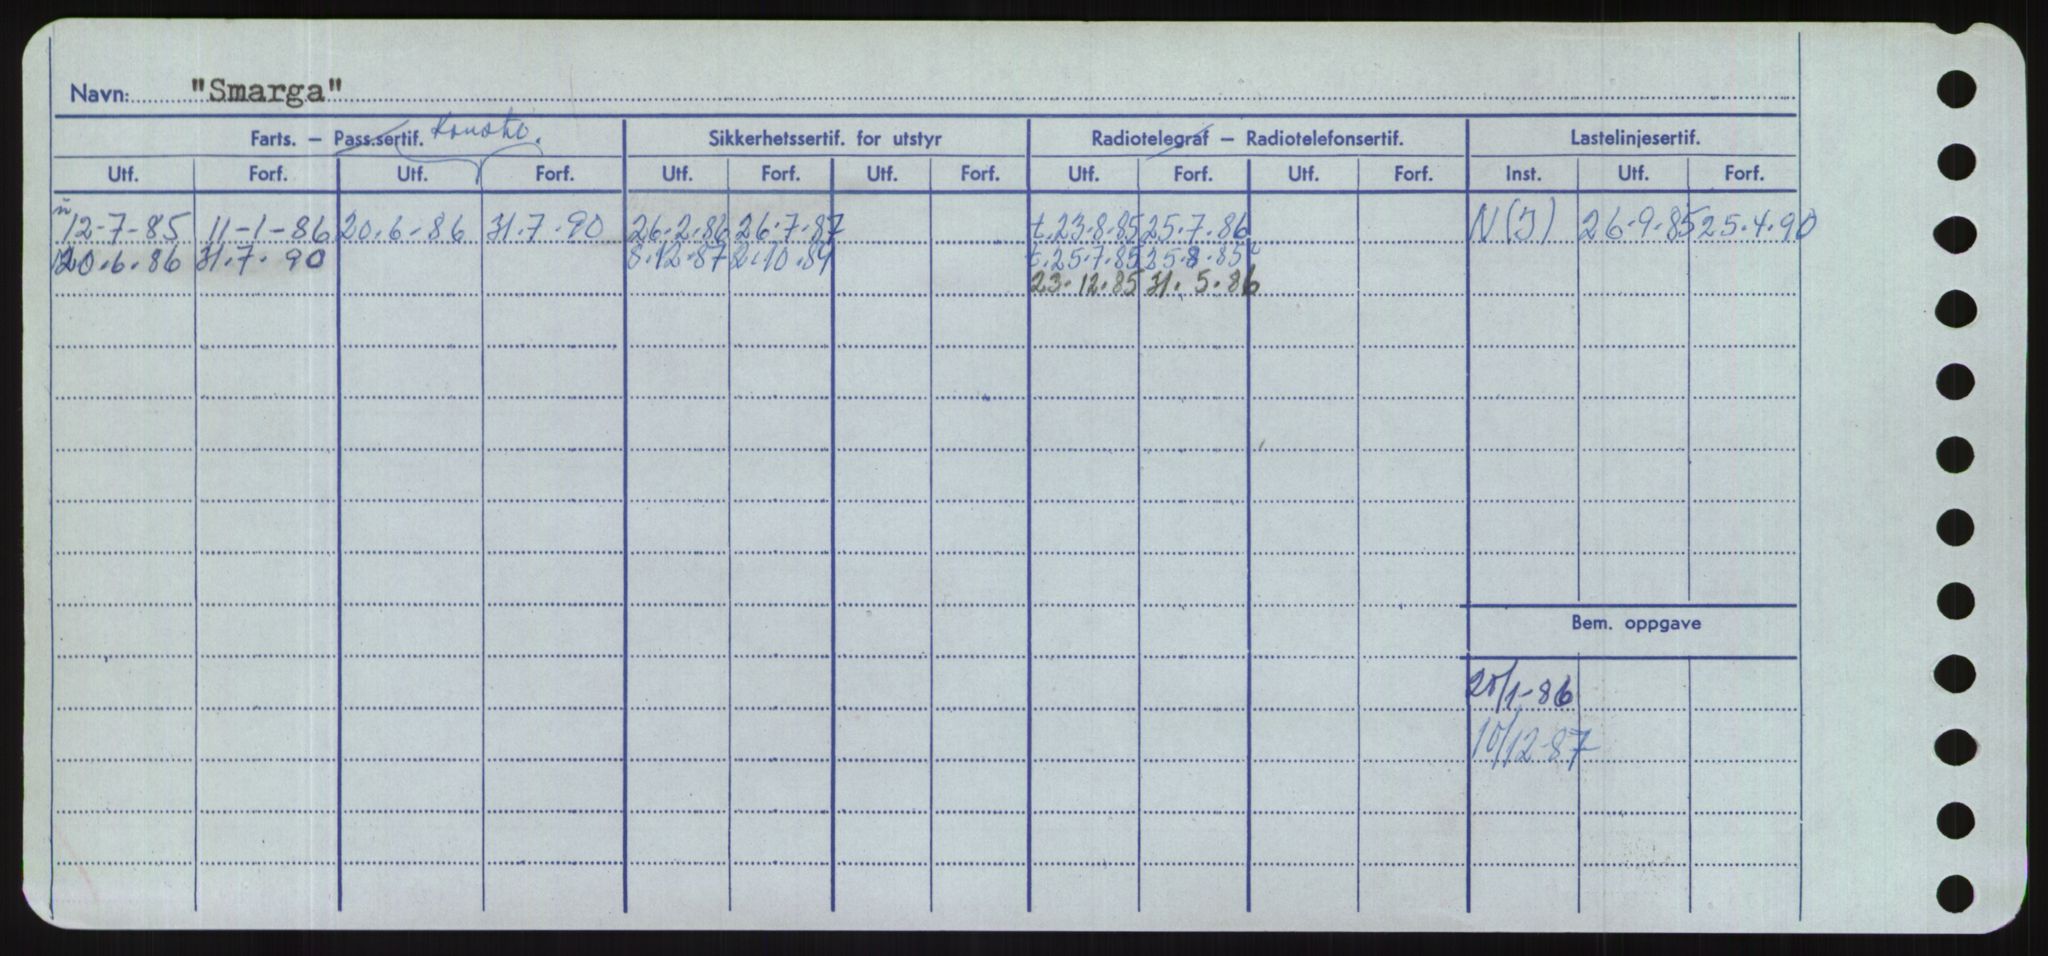 Navn: "Smarga"
Farts. — Pass.sertif. Konstr. Sikkerhetssertif. for utstyr Radiotelegraf — Radiotelefonsertif. Lastelinjesertif.
Utf. Forf. Utf. Forf. Utf. Forf. Utf. Forf. Utf. Forf. Utf. Forf. Inst. Utf. Forf.
12-7-85 11-1-86 20.6.86 31.7.90 26.2.86 26.7.87 t.23.8.85 25.7.86 N(I) 26.9.85 25.4.90
20.6.86 31.7.90 8.12.87 2.10.89 t.25.7.85 25.8.85
23.12.85 31.5.86
Bem. oppgave
20/1-86
10/12-87